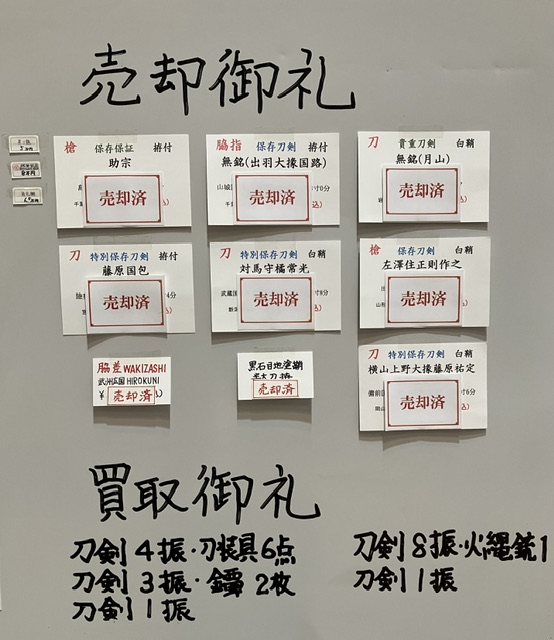 売却御礼
槍 保存保証 拵付
助宗
売却済
脇指 保存刀剣 拵付
無銘(出羽大掾国路)
山城
寸0分
売却済
刀 貴重刀剣 白鞘
無銘(月山)
売却済
刀 特別保存刀剣 拵付
藤原国包
売却済
刀 特別保存刀剣 白鞘
対馬守橘常光
武蔵
寸8分
売却済
槍 保存刀剣 白鞘
左澤住正則作之
売却済
脇差 WAKIZASHI
武州広国 HIROKUNI
¥ 売却済
黒石目地塗鞘
売却済
刀 特別保存刀剣 白鞘
横山上野大掾藤原祐定
備前
寸6分
売却済
買取御礼
刀剣4振・刀装具6点
刀剣3振・鐔 2枚
刀剣1振
刀剣8振・火縄銃1
刀剣1振